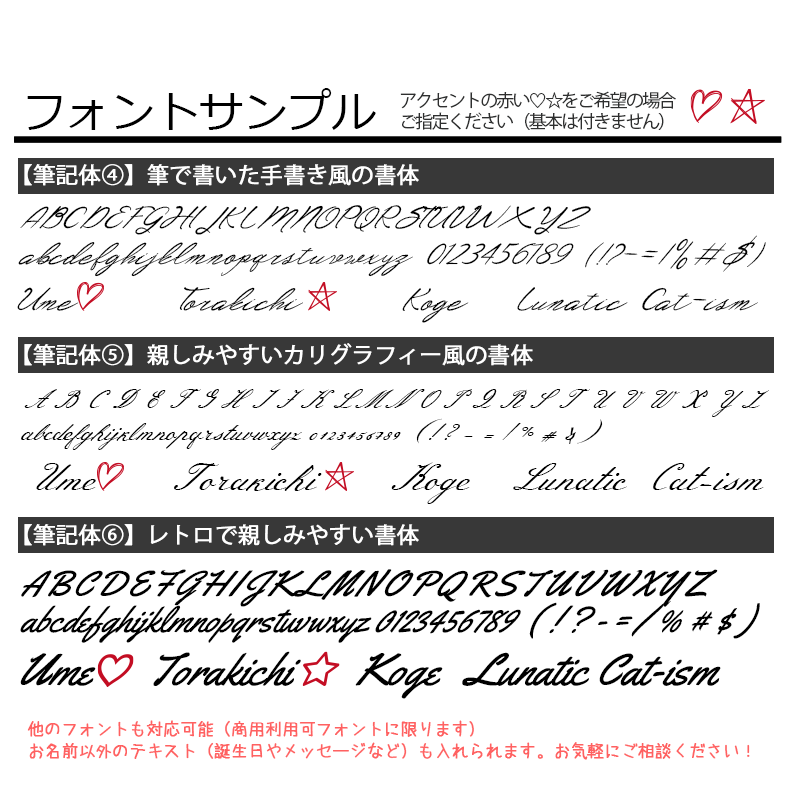 フォントサンプル
アクセントの赤い♡☆をご希望の場合
ご指定ください（基本は付きません）
【筆記体④】筆で書いた手書き風の書体
ABCDEFGHIJKLMNOPQRSTUVWXYZ
abcdefghijklmnopqrstuvwxyz 0123456789 (!?-=/%#$)
Ume♡ Torakichi☆ Koge Lunatic Cat-ism
【筆記体⑤】親しみやすいカリグラフィー風の書体
ABCDEFGHIJKLMNOPQRSTUVWXYZ
abcdefghijklmnopqrstuvwxyz 0123456789 (!?-=/%#$)
Ume♡ Torakichi☆ Koge Lunatic Cat-ism
【筆記体⑥】レトロで親しみやすい書体
ABCDEFGHIJKLMNOPQRSTUVWXYZ
abcdefghijklmnopqrstuvwxyz 0123456789 (!?-=/%#$)
Ume♡ Torakichi☆ Koge Lunatic Cat-ism
他のフォントも対応可能（商用利用可フォントに限ります）
お名前以外のテキスト（誕生日やメッセージなど）も入れられます。お気軽にご相談ください！